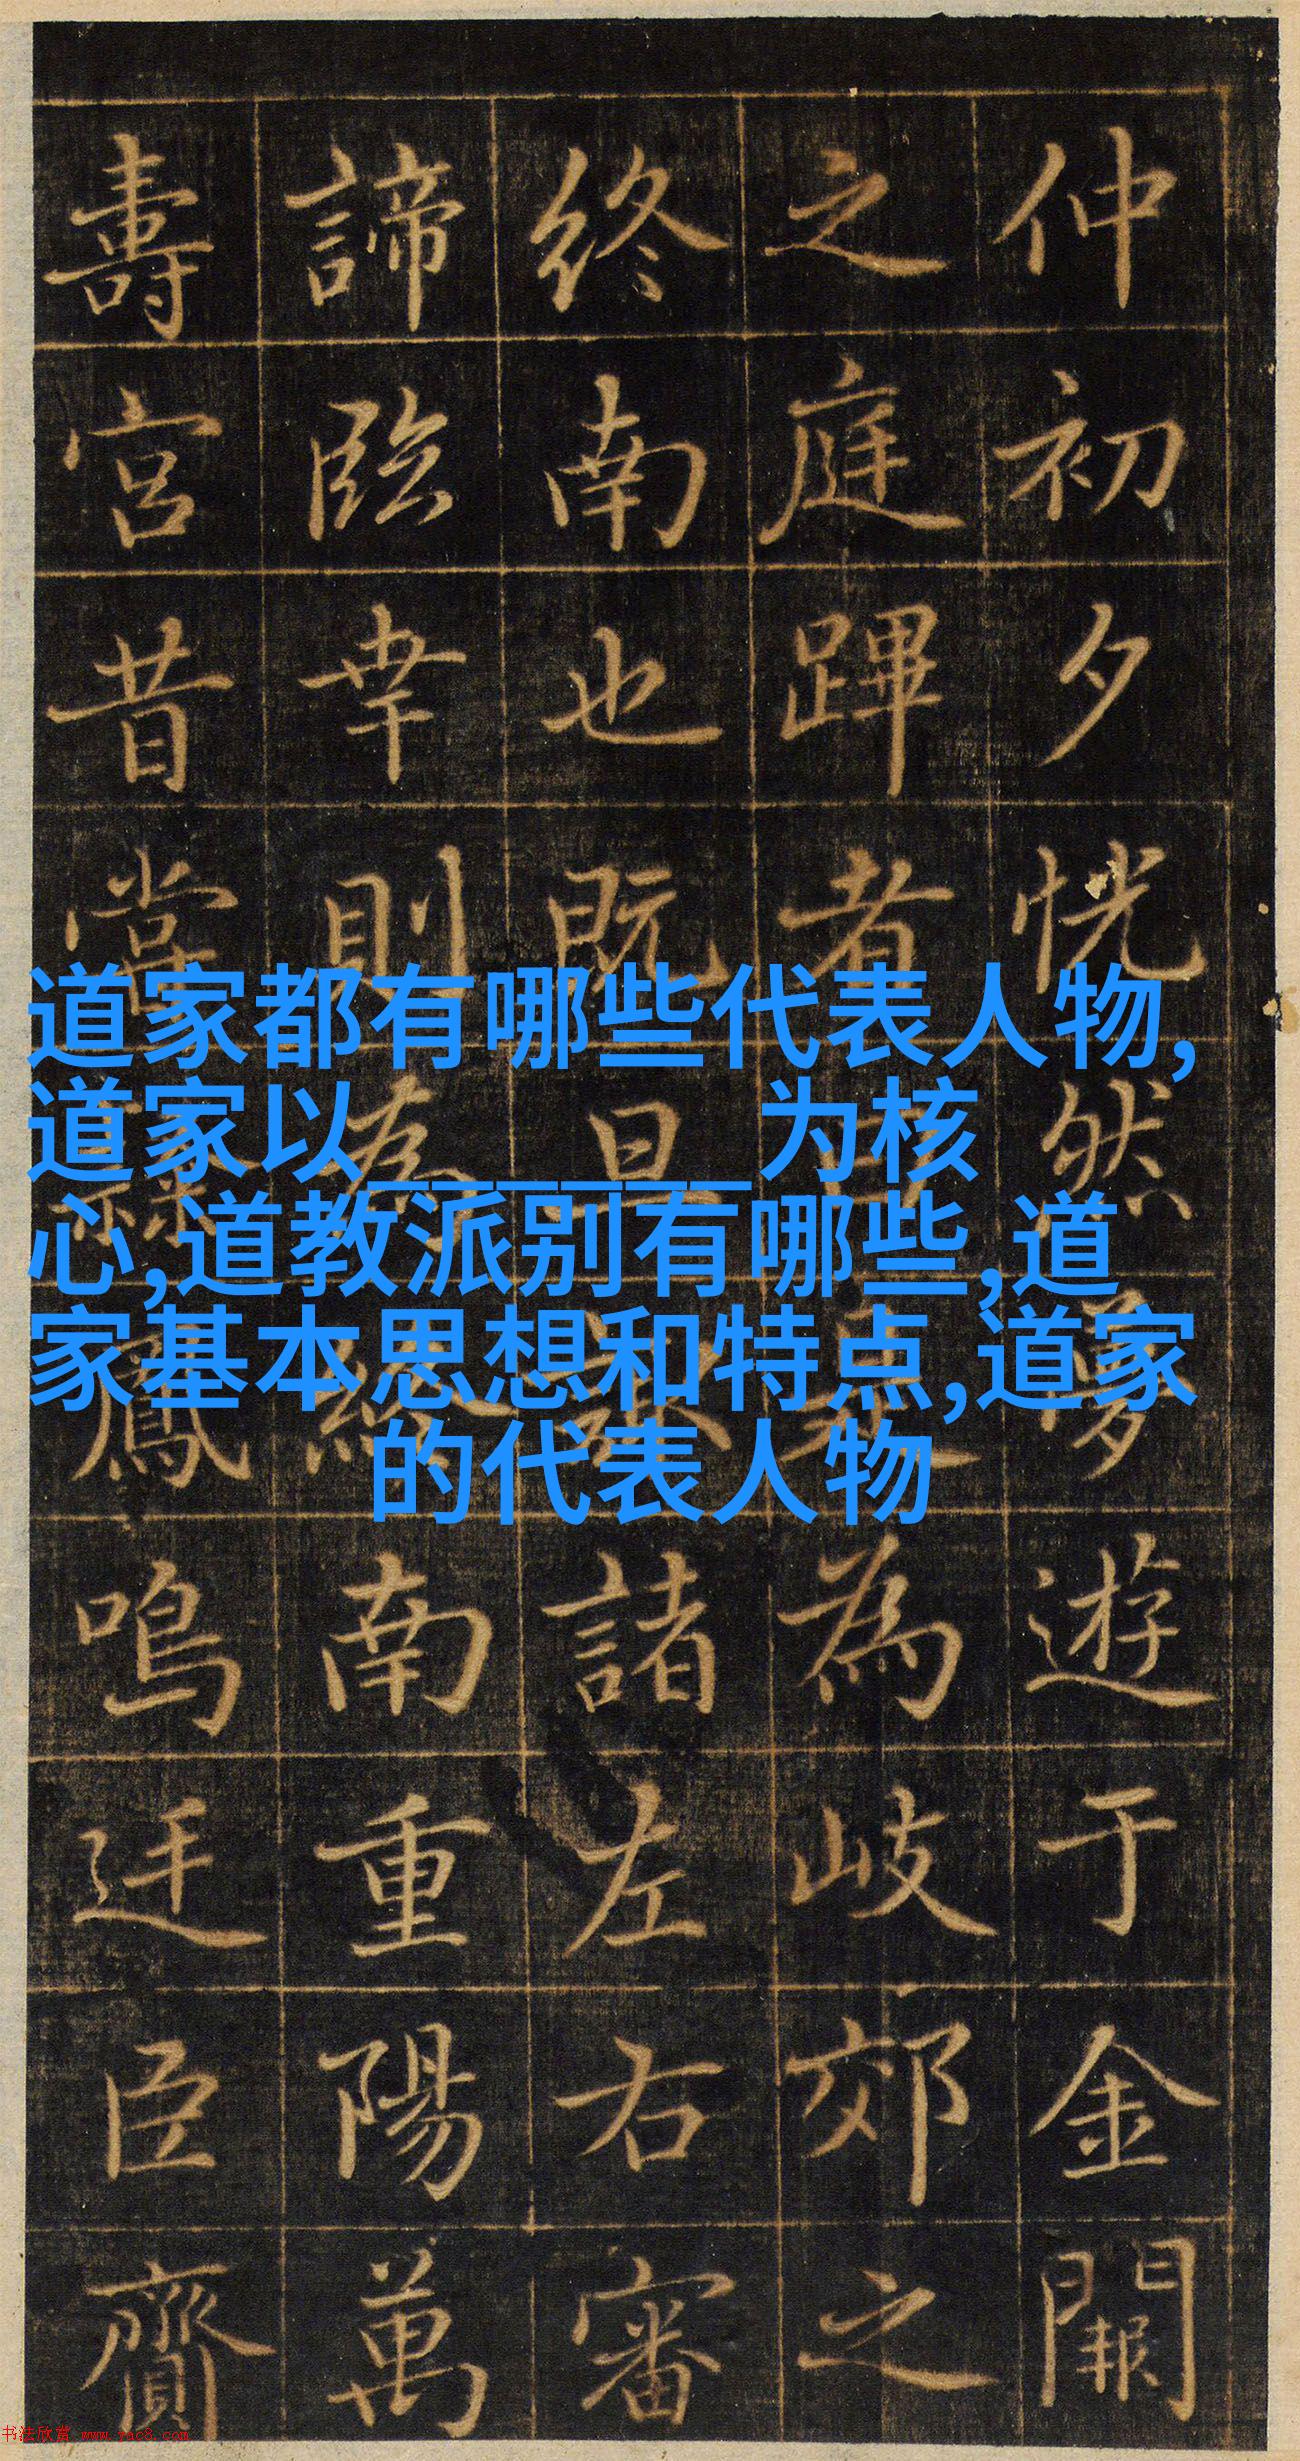 道家都有哪些代表人物,
道家以_______为核
心,道教派别有哪些,道
家基本思想和特点,道家
的代表人物
仲初夕恍然夢遊于金闕
之庭蹕者為岐郊之
終南也既旦諸左右審
諦臨幸則為終南重陽萬
壽宮昔嘗隸鳳鳴迂臣齎
书法欣赏 www.yac8.com